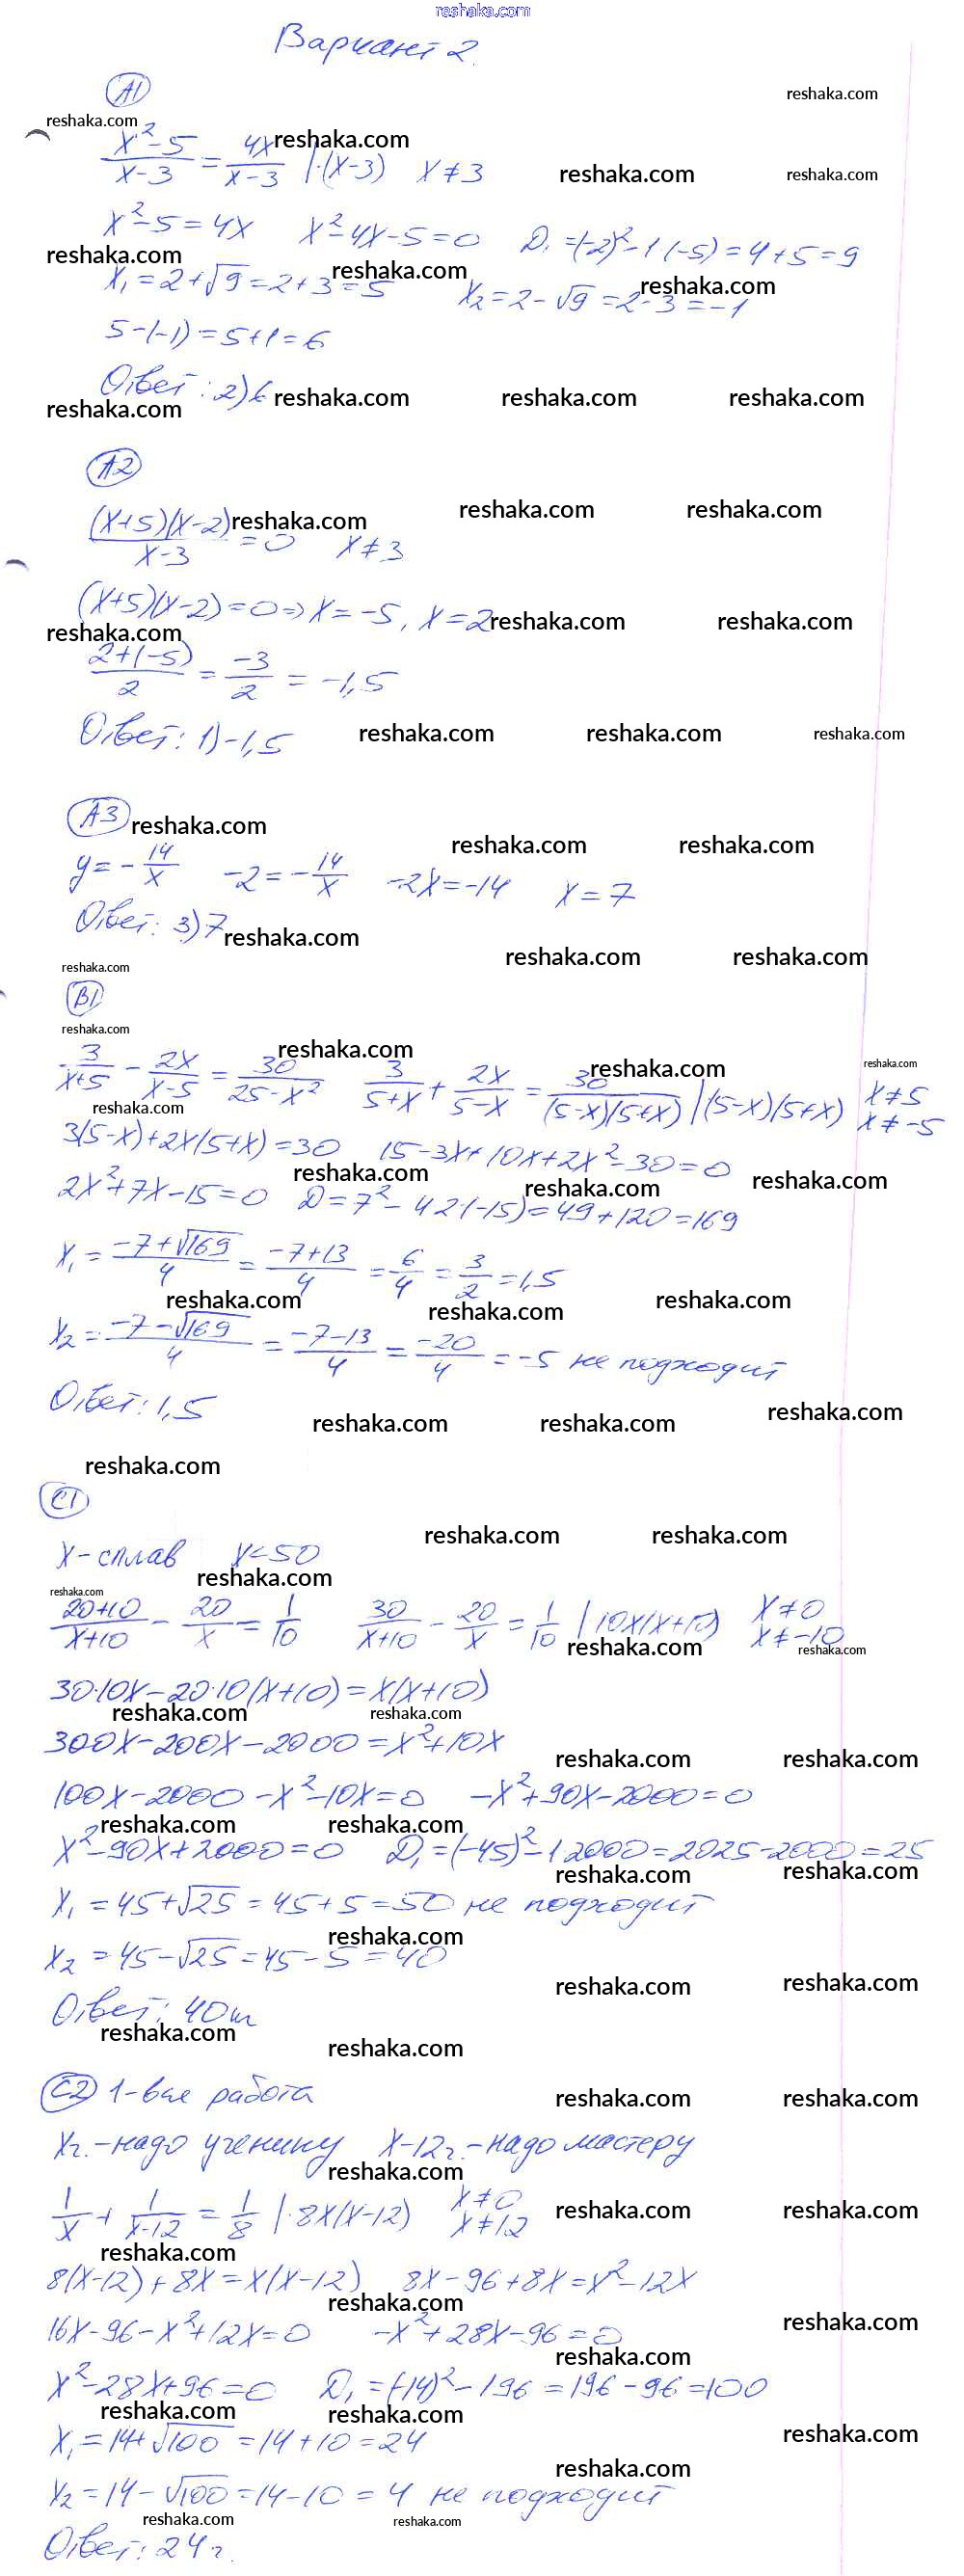 reshaka.com
Вариант 2.
А1
(x²-5)/(x-3) = 4x/(x-3) |·(x-3) x≠3
x²-5=4x x²-4x-5=0 D₁=(-2)²-1(-5)=4+5=9
x₁=2+√9=2+3=5 x₂=2-√9=2-3=-1
5-(-1)=5+1=6
Ответ: 2) 6
А2
(x+5)(x-2)/(x-3) = 0 x≠3
(x+5)(x-2)=0 => x=-5, x=2
(2+(-5))/2 = -3/2 = -1,5
Ответ: 1) -1,5
А3
y=-14/x -2=-14/x -2x=-14 x=7
Ответ: 3) 7
В1
3/(x+5) - 2x/(x-5) = 30/(25-x²) 3/(5+x) + 2x/(5-x) = 30/((5-x)(5+x)) |(5-x)(5+x) x≠5 x≠-5
3(5-x)+2x(5+x)=30 15-3x+10x+2x²-30=0
2x²+7x-15=0 D=7²-4·2(-15)=49+120=169
x₁=(-7+√169)/4=(-7+13)/4=6/4=3/2=1,5
x₂=(-7-√169)/4=(-7-13)/4=-20/4=-5 не подходит
Ответ: 1,5
С1
x-сплав x<50
(20+10)/(x+10) - 20/x = 1/10 30/(x+10) - 20/x = 1/10 | 10x(x+10) x≠0 x≠-10
30·10x-20·10(x+10)=x(x+10)
300x-200x-2000=x²+10x
100x-2000-x²-10x=0 -x²+90x-2000=0
x²-90x+2000=0 D₁=(-45)²-1·2000=2025-2000=25
x₁=45+√25=45+5=50 не подходит
x₂=45-√25=45-5=40
Ответ: 40т
С2 1-вся работа
xч.-надо ученику x-12ч.-надо мастеру
1/x + 1/(x-12) = 1/8 |·8x(x-12) x≠0 x≠12
8(x-12)+8x=x(x-12) 8x-96+8x=x²-12x
16x-96-x²+12x=0 -x²+28x-96=0
x²-28x+96=0 D₁=(-14)²-196=196-96=100
x₁=14+√100=14+10=24
x₂=14-√100=14-10=4 не подходит
Ответ: 24ч.